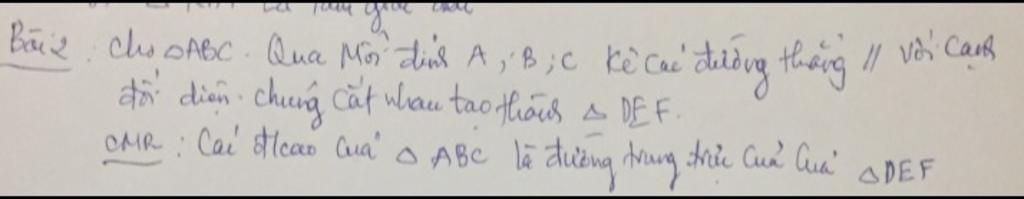 Bài 2: Cho △ABC. Qua Mỗi đỉnh A, B; C Kẻ các đường thẳng // với cạnh
đối diện. Chúng cắt nhau tạo thành △ DEF.
CMR: Các đcao của △ ABC là đường trung trực của của △DEF